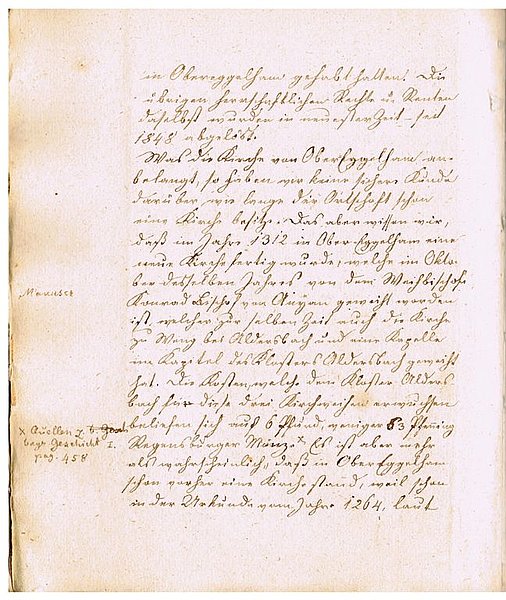 in Obereggelham gehabt hatten. Die
übrigen herrschaftlichen Rechte u. Renten
daselbst wurden in neuester Zeit – seit
1848 abgelöst.
Was die Kirche von OberEggelham an-
belangt, so haben wir keine sichere Kunde
darüber, wie lange die Ortschaft schon
eine Kirche besitzt. Das aber wissen wir,
daß im Jahre 1312 in Ober-Eggelham eine
neue Kirche fertig wurde, welche im Okto-
ber desselben Jahres von dem Weihbischofe
Konrad Bischof von geweiht worden
ist, welcher zur selben Zeit auch die Kirche
zu Weng bei Aldersbach und eine Kapelle
im Kapitel des Klosters Aldersbach geweiht
hat. Die Kosten, welche dem Kloster Alders
bach für diese drei Kirchweihen erwuchsen
beliefen sich auf 6 Pfund, weniger 3 Pfennig
Regensburger Münze x Es ist aber mehr
als wahrscheinlich, daß in OberEggelham
schon vorher eine Kirche stand, weil schon
in der Urkunde vom Jahre 1264, laut
x Quellen z. b.
bayr. Geschicht I.
pag. 458